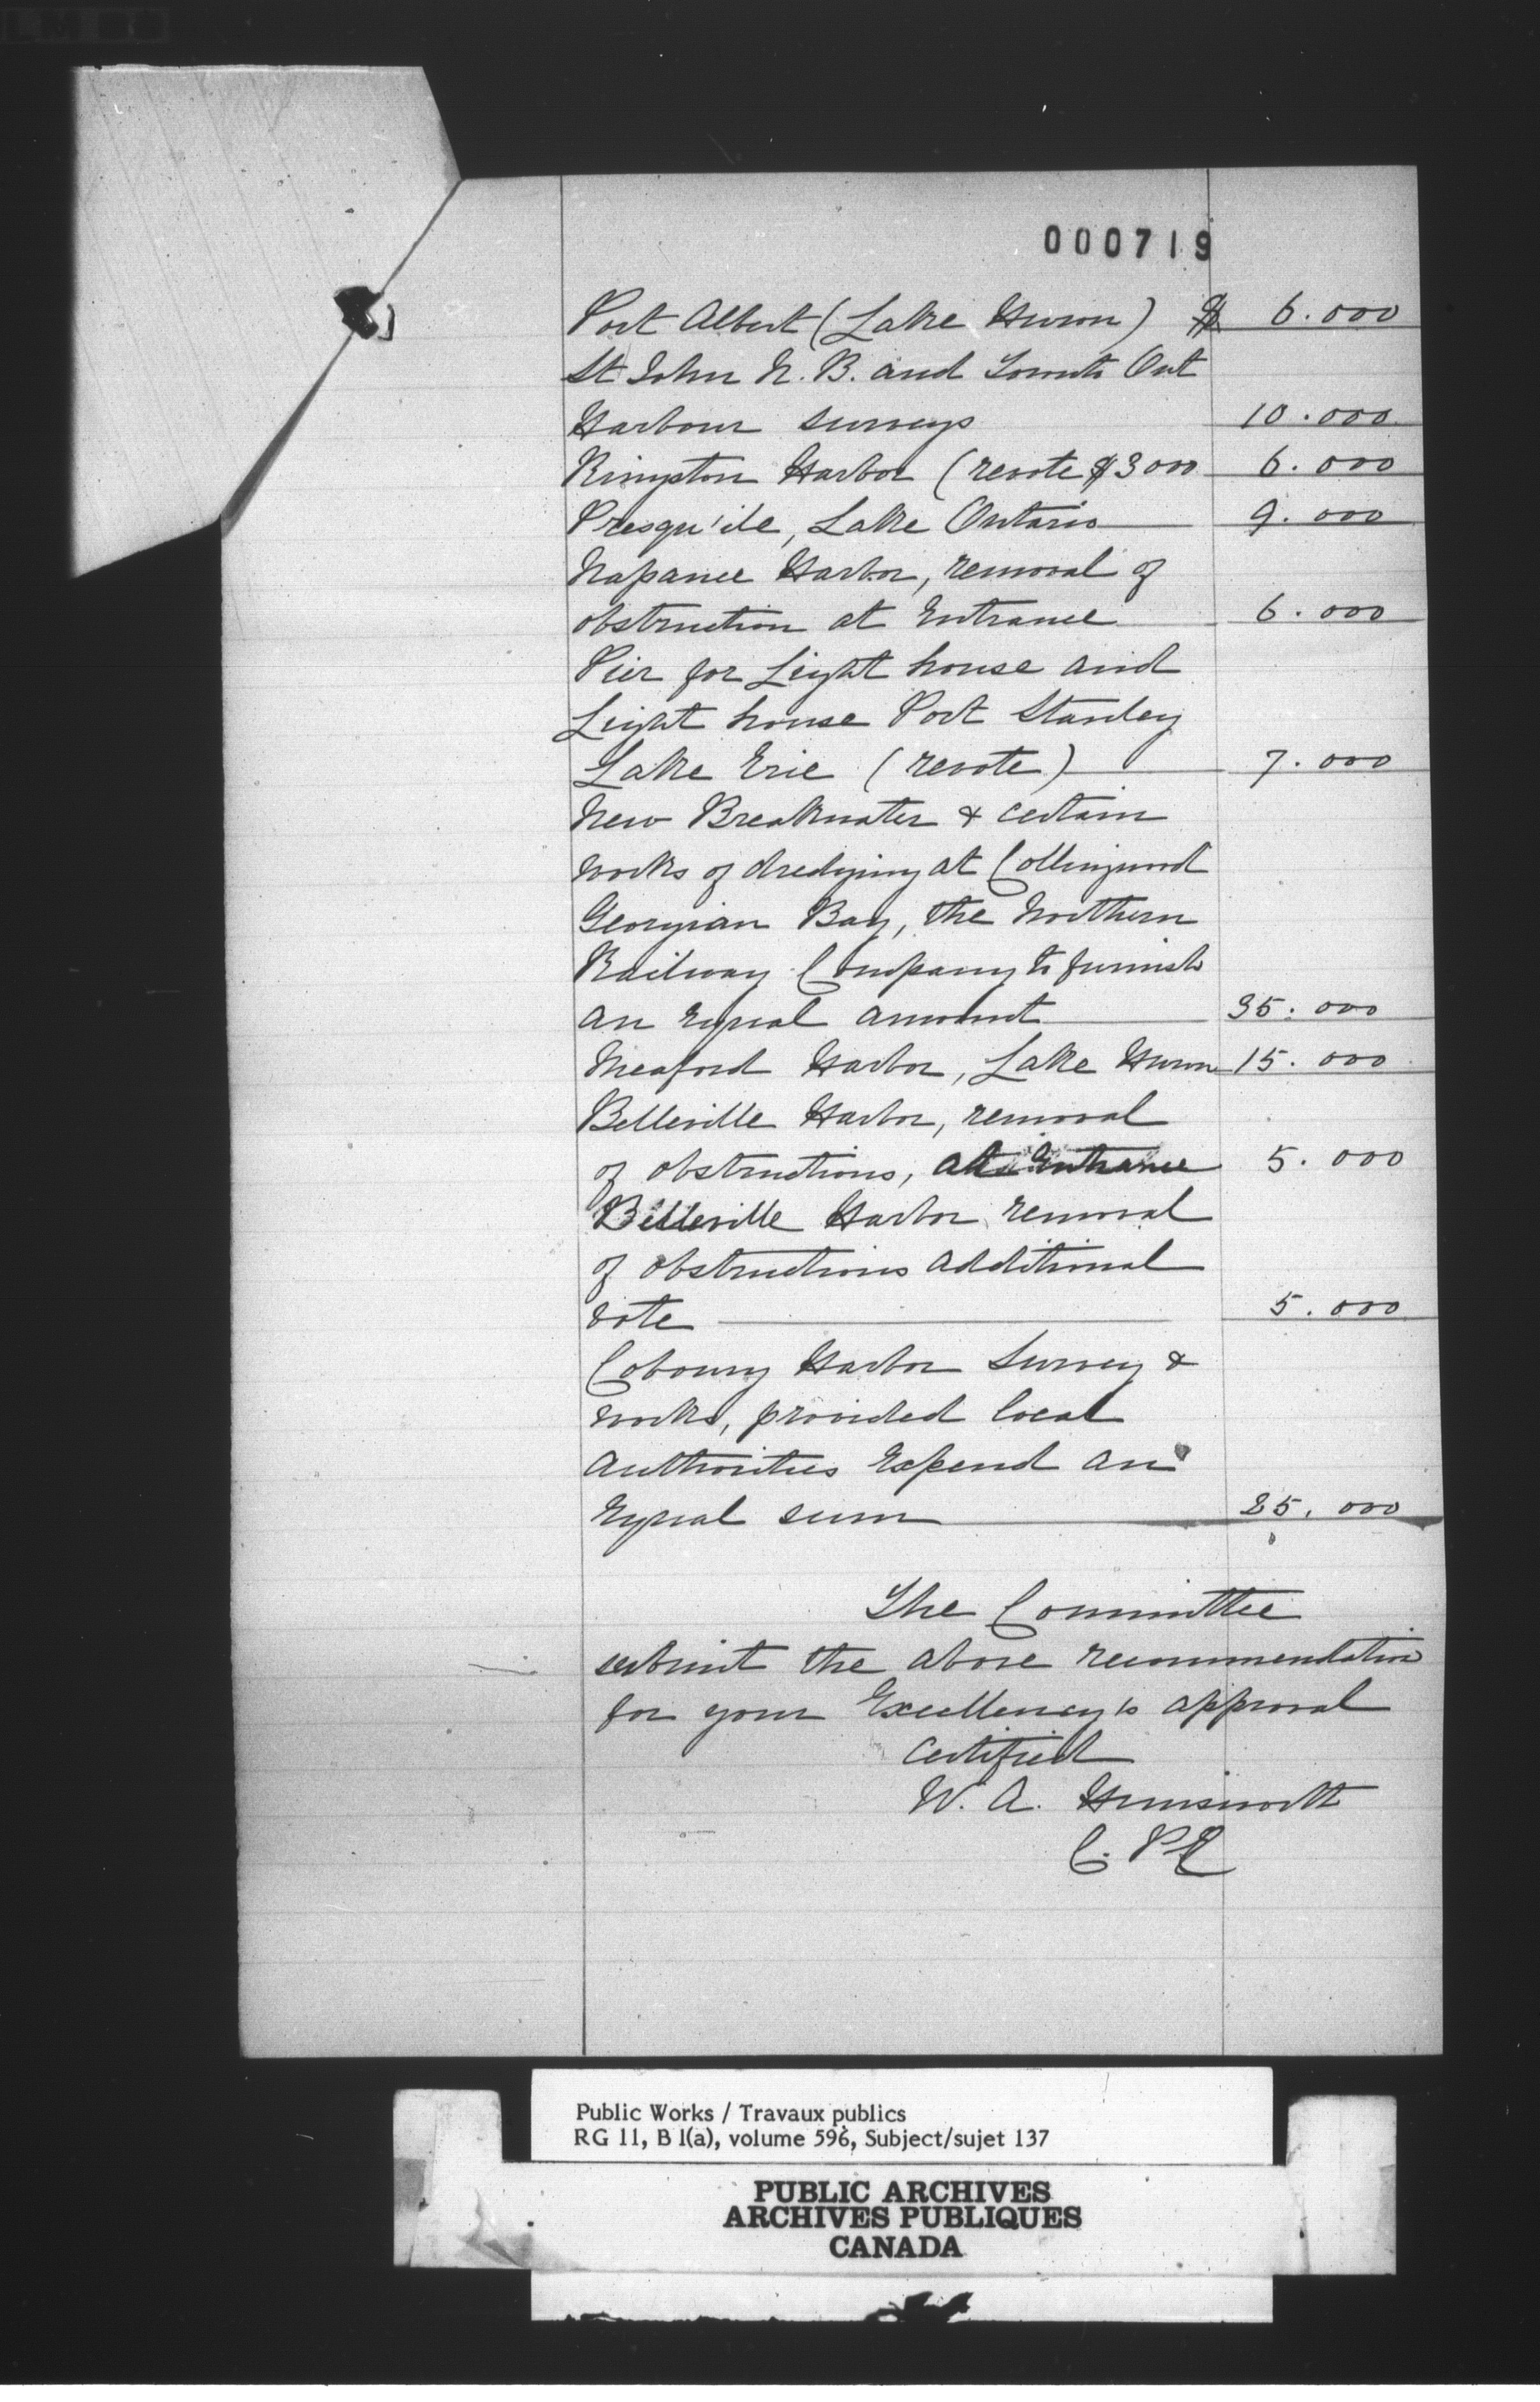 000719
Port Albert (Lake Huron) $ 6.000
St John N. B. and Toronto Ont
Harbour surveys 10.000
Kingston Harbor (revote $3000 6.000
Presqu'ile, Lake Ontario 9.000
Napanee Harbor, removal of
obstruction at Entrance 6.000
Pier for Light house and
Light house Port Stanley
Lake Erie (revote) 7.000
New Breakwater & certain
works of dredging at Collingwood
Georgian Bay, the Northern
Railway Company to furnish
an Equal amount 35.000
Meaford Harbor, Lake Huron 15.000
Belleville Harbor, removal
of obstructions, at Entrance 5.000
Belleville Harbor removal
of obstructions additional
vote 5.000
Cobourg Harbor Survey &
works, provided local
authorities Expend an
Equal sum 25.000
The Committee
submit the above recommendation
for your Excellency's approval
Certified
W. A. Himsworth
C. P. C
Public Works / Travaux publics
RG 11, B 1(a), volume 596, Subject/sujet 137
PUBLIC ARCHIVES
ARCHIVES PUBLIQUES
CANADA